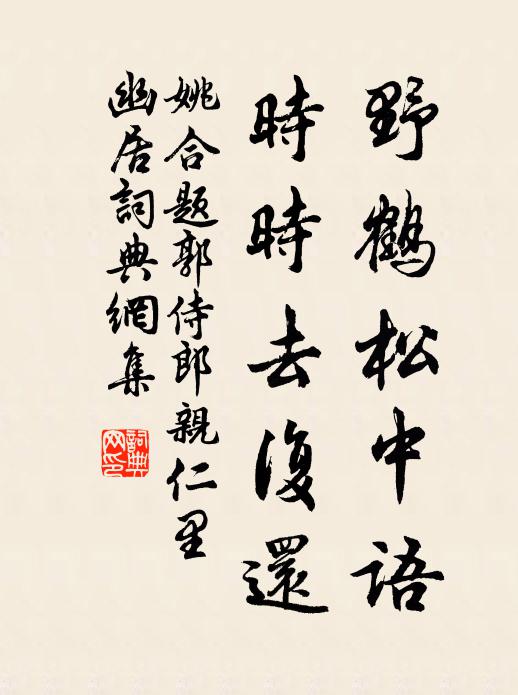 野鶴松中語
時時去復還
姚合题郭侍郎親仁里
幽居詞典網集
詞典网印